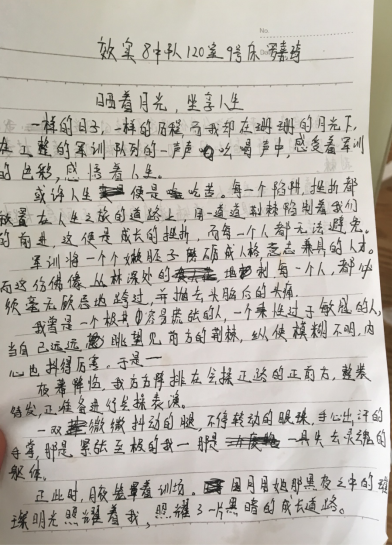 No.
效实8中队120室9号床
晒着月光，坐享人生
一样的日子，一样的历程，而我却在珊珊的月光下，
在整的军训队列的一声声吆喝声中，感受着军训
的色彩，感悟着人生。
或许人生便是吃苦。每一个陷阱，挫折都
放置在人生之旅的道路上，用一道道荆棘阻制着我们
的前进，这便是成长的挫折，而每一个人都无法避免。
军训将一个个嫩胚子磨砺成人格意志兼具的人才。
而这仿佛像丛林深处的，每一个人，都必
须毫无顾忌地跨过，并抛去头脑后的头痛。
我曾是一个极其容易慌张的人，一个秉性过于敏感的人，
当自己远远眺望见前方的荆棘，纵使模糊不明，内
心也抖得厉害。于是一
夜幕降临，我方方阵排在会操正达的正前方，整装
待发，正准备进行会操表演。
一双微微抖动的腿，不停转动的眼珠，手心出汗的
手掌，那是累依至极的我一那是一具失去灵魂的
躯体。
正此时，月夜笼罩着训坊。月月姐那黑夜之中的
璨明光照耀着我，照耀了一片黑暗的成长道路。